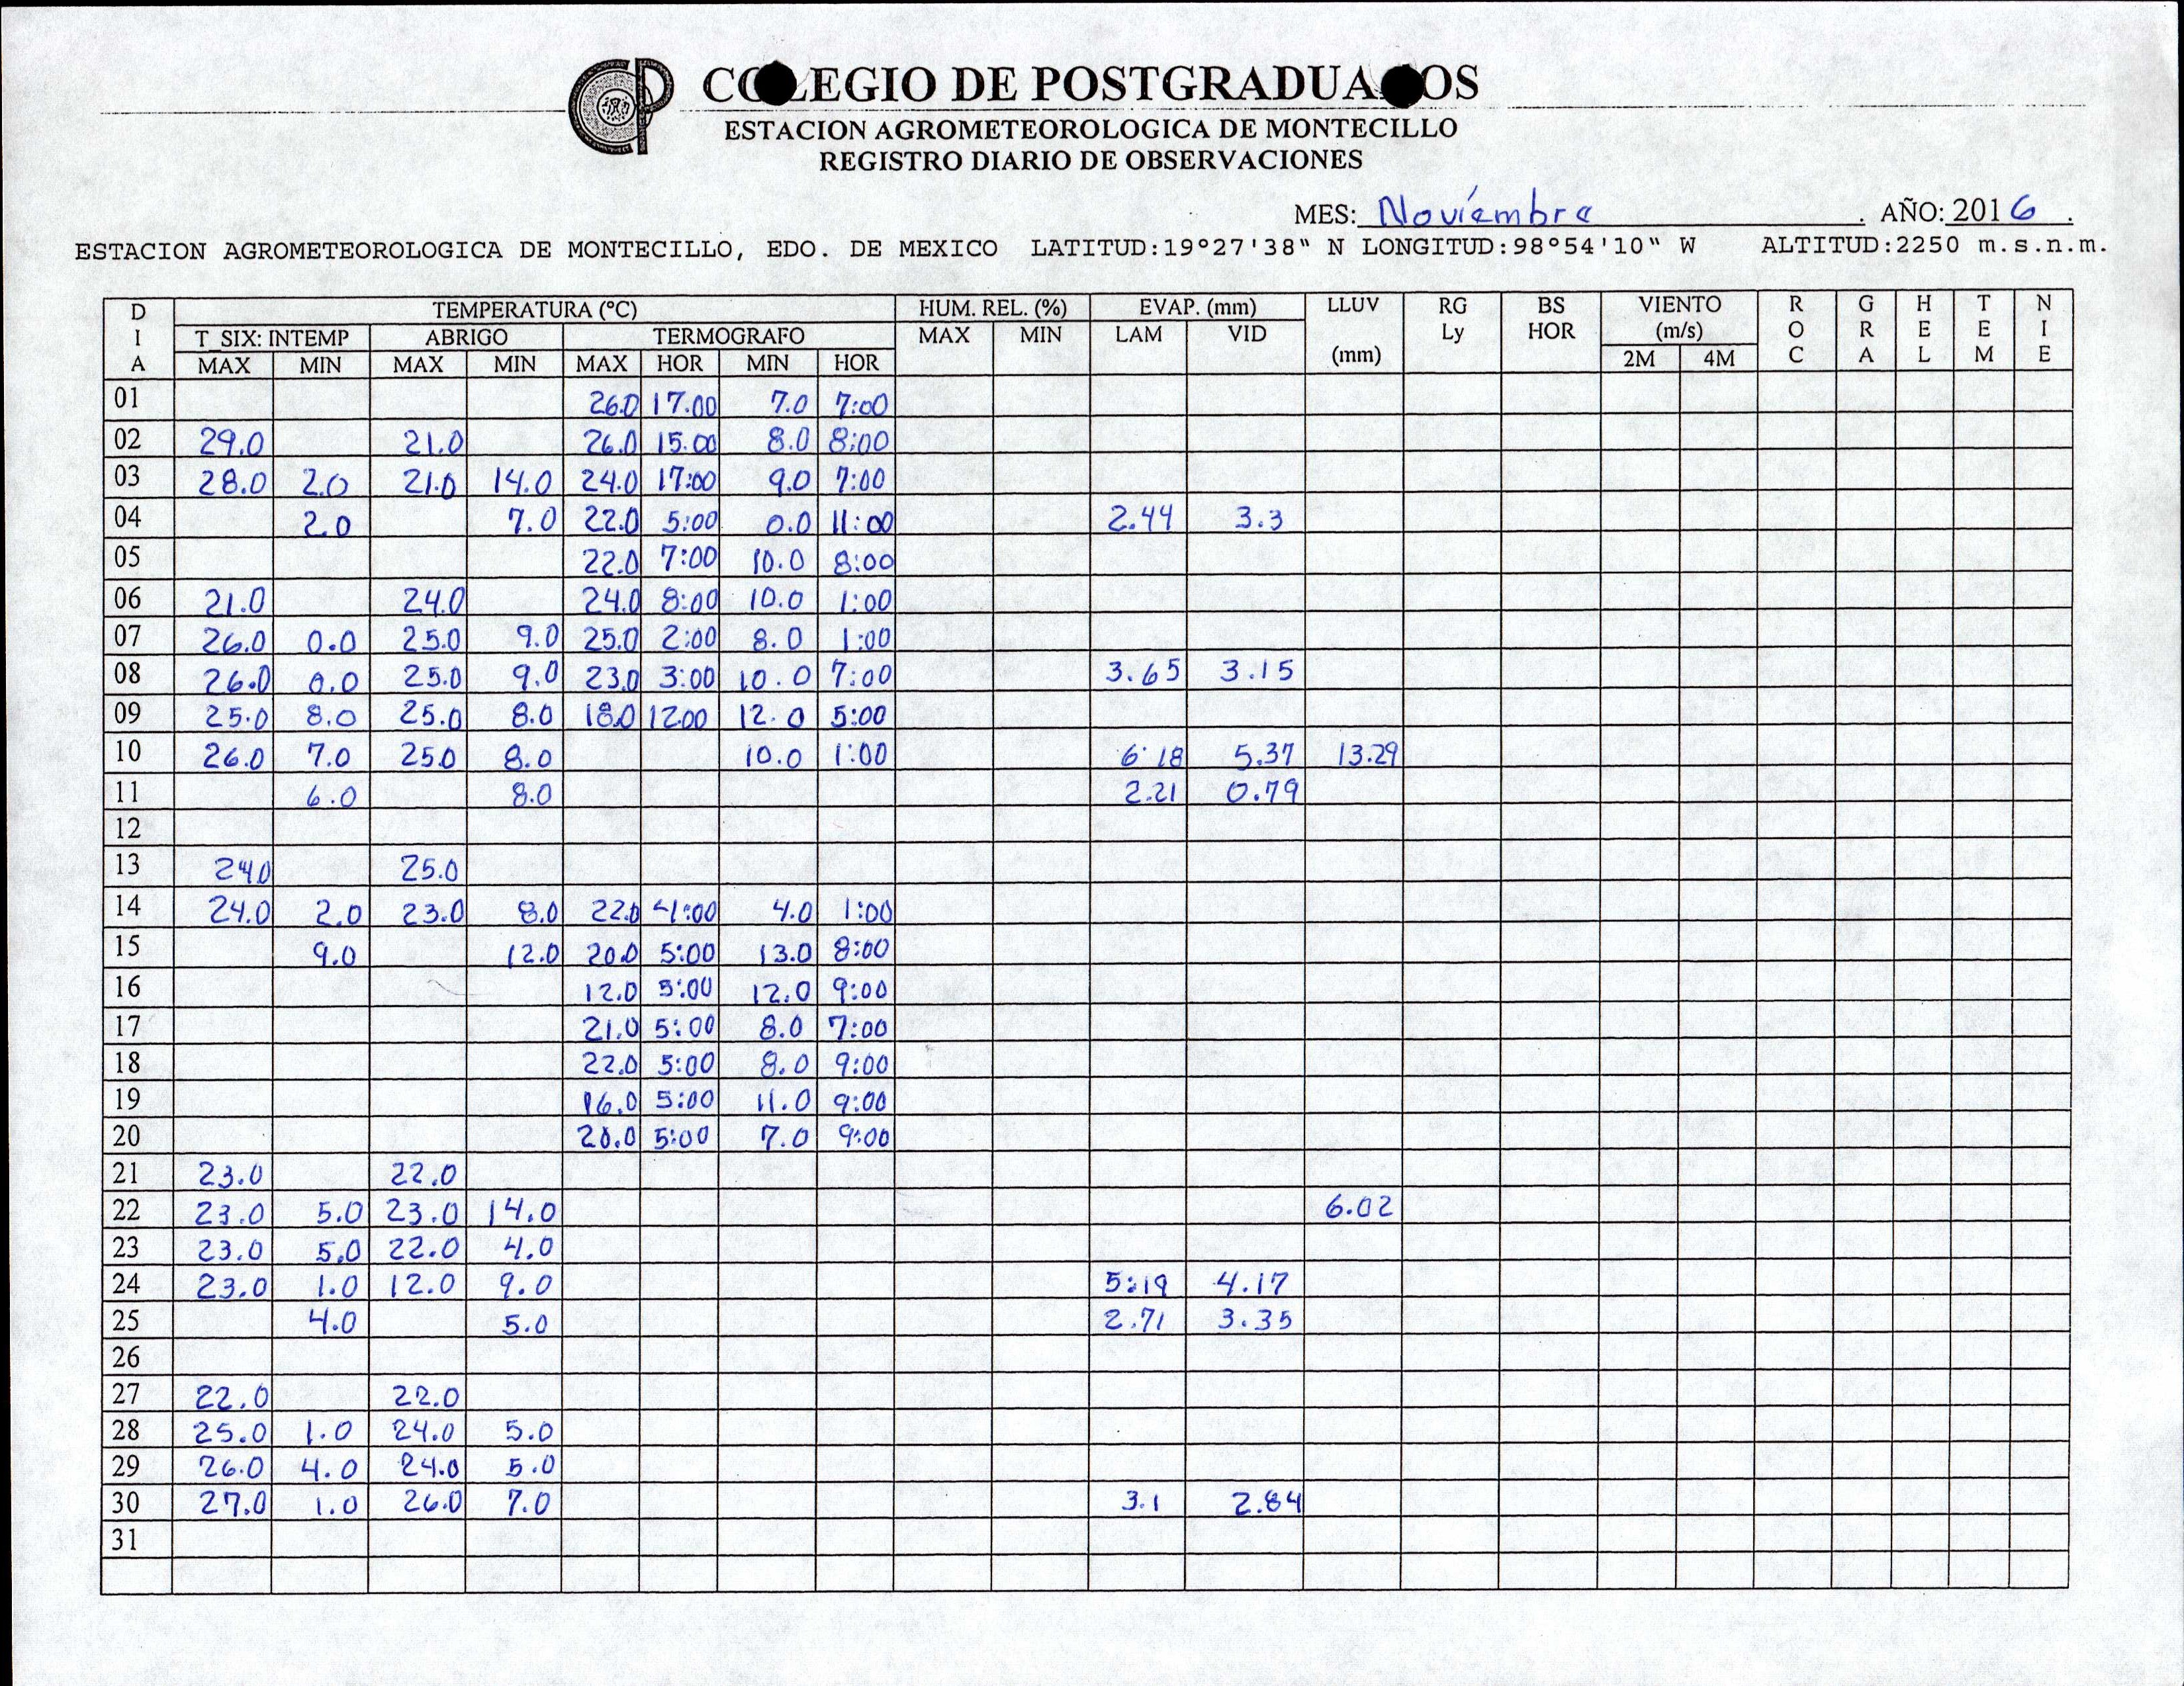 COLEGIO DE POSTGRADUADOS
ESTACION AGROMETEOROLOGICA DE MONTECILLO
REGISTRO DIARIO DE OBSERVACIONES
MES: Noviembre. AÑO: 2016.
ESTACION AGROMETEOROLOGICA DE MONTECILLO, EDO. DE MEXICO LATITUD:19°27'38" N LONGITUD:98°54'10" W ALTITUD:2250 m.s.n.m.
DIA TEMPERATURA (ºC) HUM. REL. (%) EVAP. (mm) LLUV RG BS VIENTO ROC GRA HEL TEM NIE
T SIX: INTEMP ABRIGO TERMOGRAFO MAX MIN LAM VID (mm) Ly HOR (m/s)
MAX MIN MAX MIN MAX HOR MIN HOR 2M 4M
01 26.0 17.00 7.0 7:00
02 29.0 21.0 26.0 15.00 8.0 8:00
03 28.0 2.0 21.0 14.0 24.0 17:00 9.0 7:00
04 2.0 7.0 22.0 5:00 0.0 11:00 2.44 3.3
05 22.0 7:00 10.0 8:00
06 21.0 24.0 24.0 8:00 10.0 1:00
07 26.0 0.0 25.0 9.0 25.0 2:00 8.0 1:00
08 26.0 0.0 25.0 9.0 23.0 3:00 10.0 7:00 3.65 3.15
09 25.0 8.0 25.0 8.0 18.0 1200 12.0 5:00
10 26.0 7.0 25.0 8.0 10.0 1:00 6.18 5.37 13.29
11 6.0 8.0 2.21 0.79
12
13 24.0 25.0
14 24.0 2.0 23.0 8.0 22.0 4:00 4.0 1:00
15 9.0 12.0 20.0 5:00 13.0 8:00
16 12.0 5:00 12.0 9:00
17 21.0 5:00 8.0 7:00
18 22.0 5:00 8.0 9:00
19 16.0 5:00 11.0 9:00
20 20.0 5:00 7.0 9:00
21 23.0 22.0
22 23.0 5.0 23.0 14.0 6.02
23 23.0 5.0 22.0 4.0
24 23.0 1.0 12.0 9.0 5:19 4.17
25 4.0 5.0 2.71 3.35
26
27 22.0 22.0
28 25.0 1.0 24.0 5.0
29 26.0 4.0 24.0 5.0
30 27.0 1.0 26.0 7.0 3.1 2.84
31